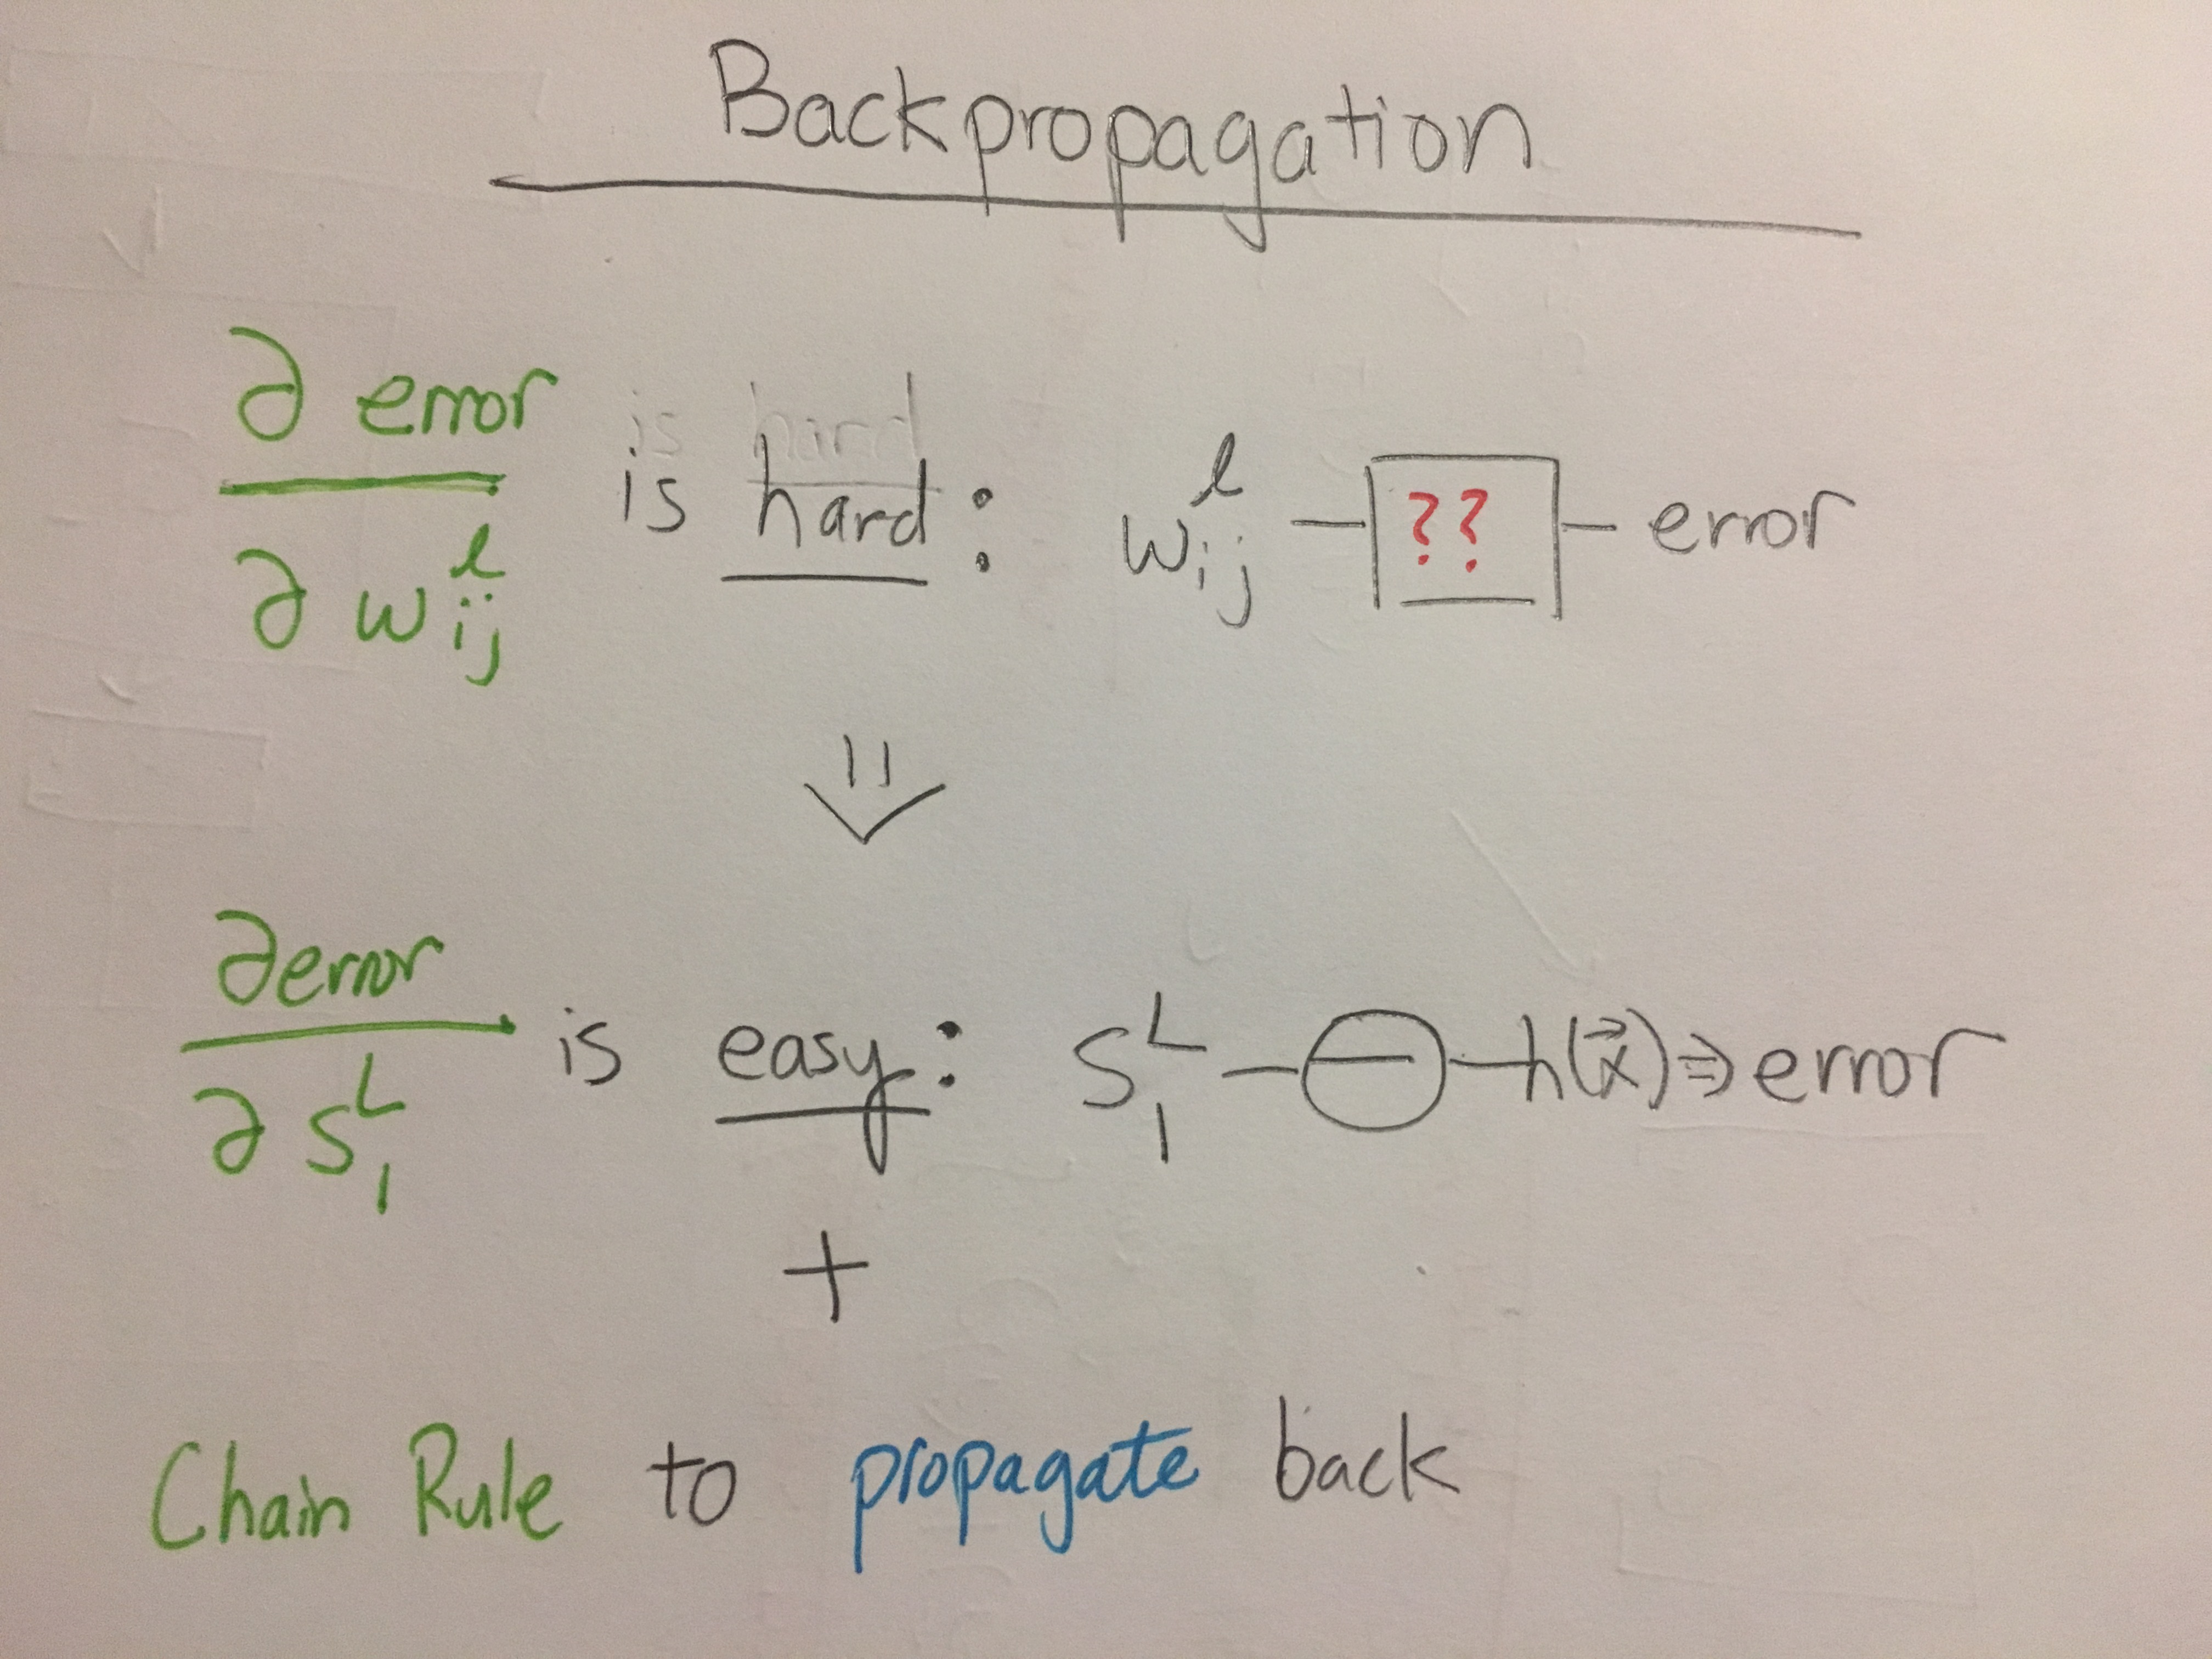 Backpropagation
∂ error / ∂ w_{ij}^{ℓ} is hard : w_{ij}^{ℓ} — ?? — error
⇓
∂ error / ∂ s_1^L is easy : s_1^L — h(x⃗) ⇒ error
+
Chain Rule to propagate back